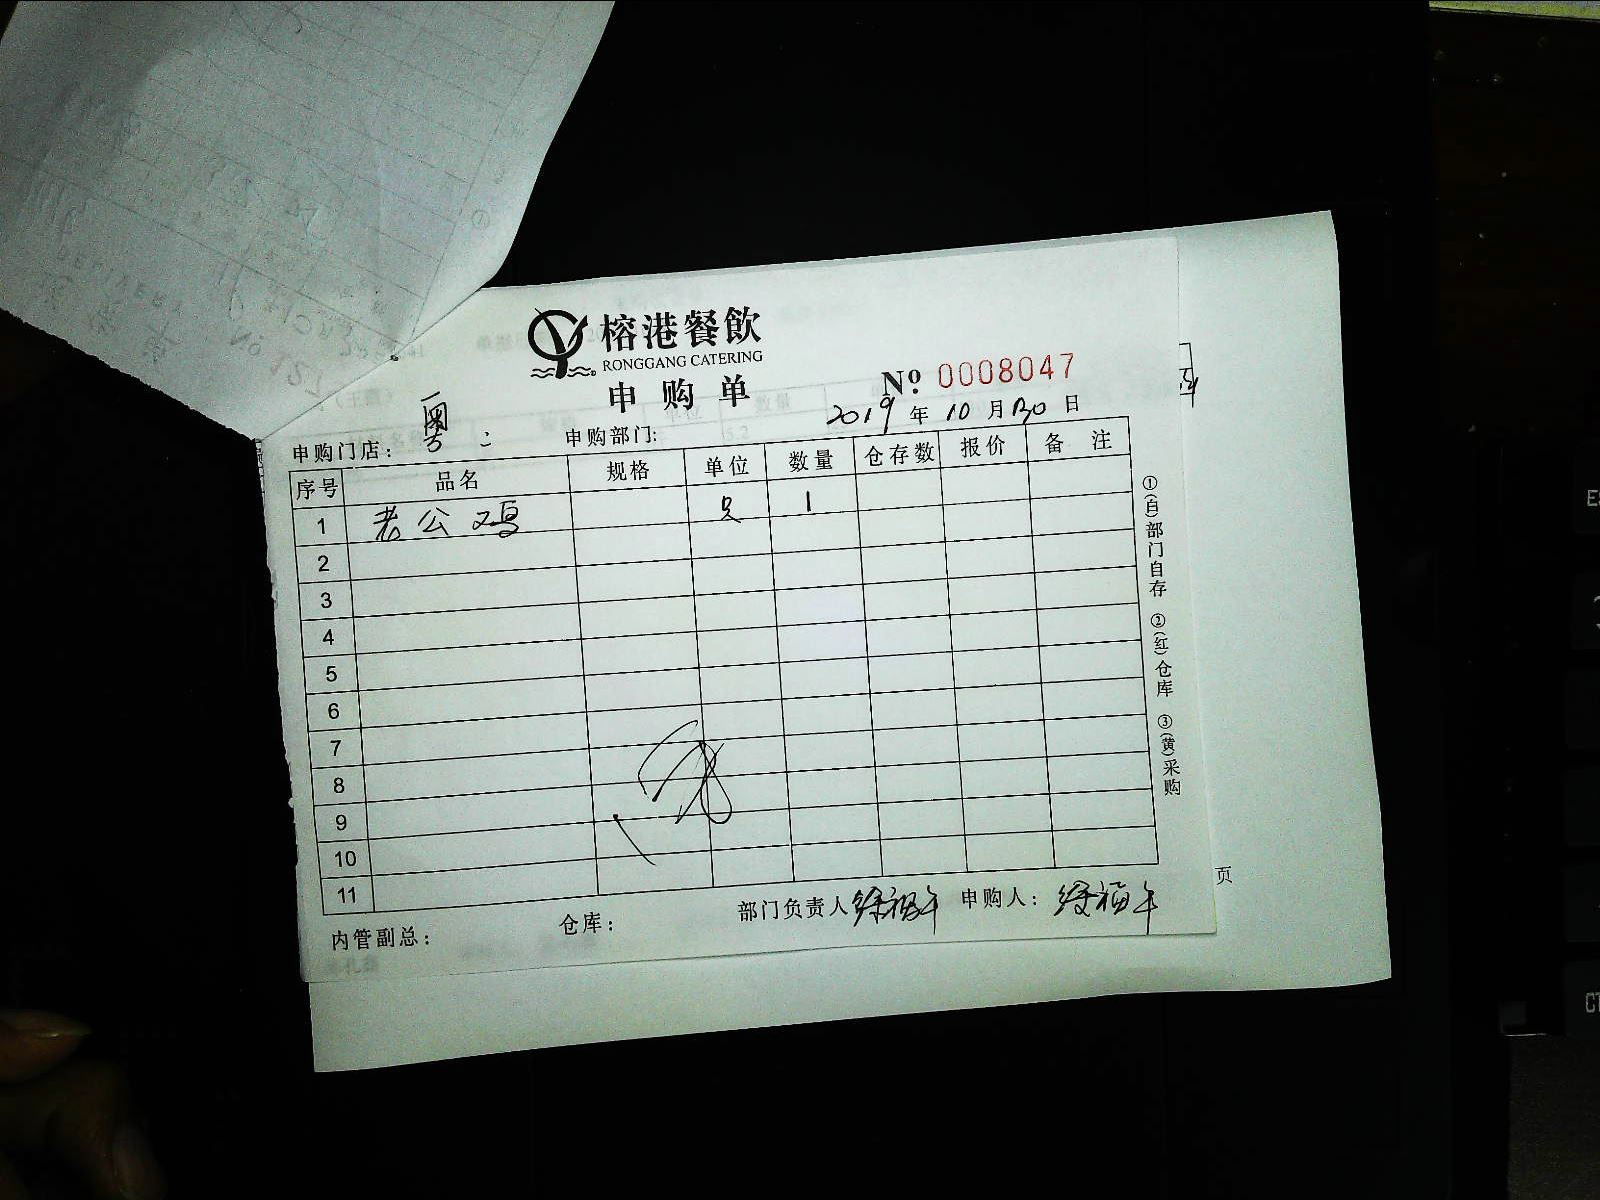 榕港餐飲
RONGGANG CATERING
申购单
No 0008047
2019 年 10 月 30 日
申购门店： 粤 二 申购部门:
序号 品名 规格 单位 数量 仓存数 报价 备 注
1 老公鸡 只 1
2
3
4
5
6
7
8
9
10
11
①(白)部门自存 ②(红)仓库 ③(黄)采购
内管副总： 仓库： 部门负责人 徐福午 申购人： 徐福午
页